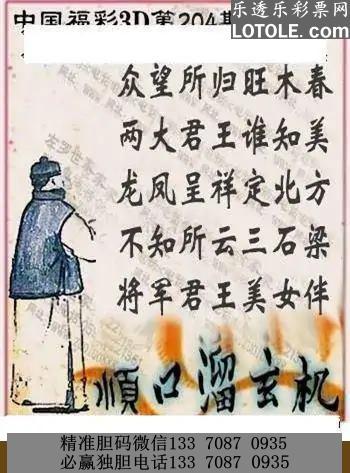 中国福彩3D第204期
乐透乐彩票网
LOTOLE.COM
众望所归旺木春
两大君王谁知美
龙凤呈祥定北方
不知所云三石梁
将军君王美女伴
顺口溜玄机
精准胆码微信133 7087 0935
必赢独胆电话133 7087 0935